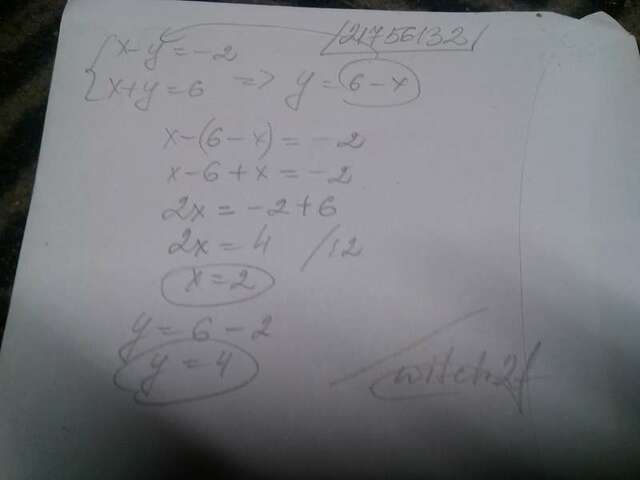 |21756132|
x-y=-2
x+y=6 => y=6-x
x-(6-x)=-2
x-6+x=-2
2x=-2+6
2x=4 /:2
x=2
y=6-2
y=4